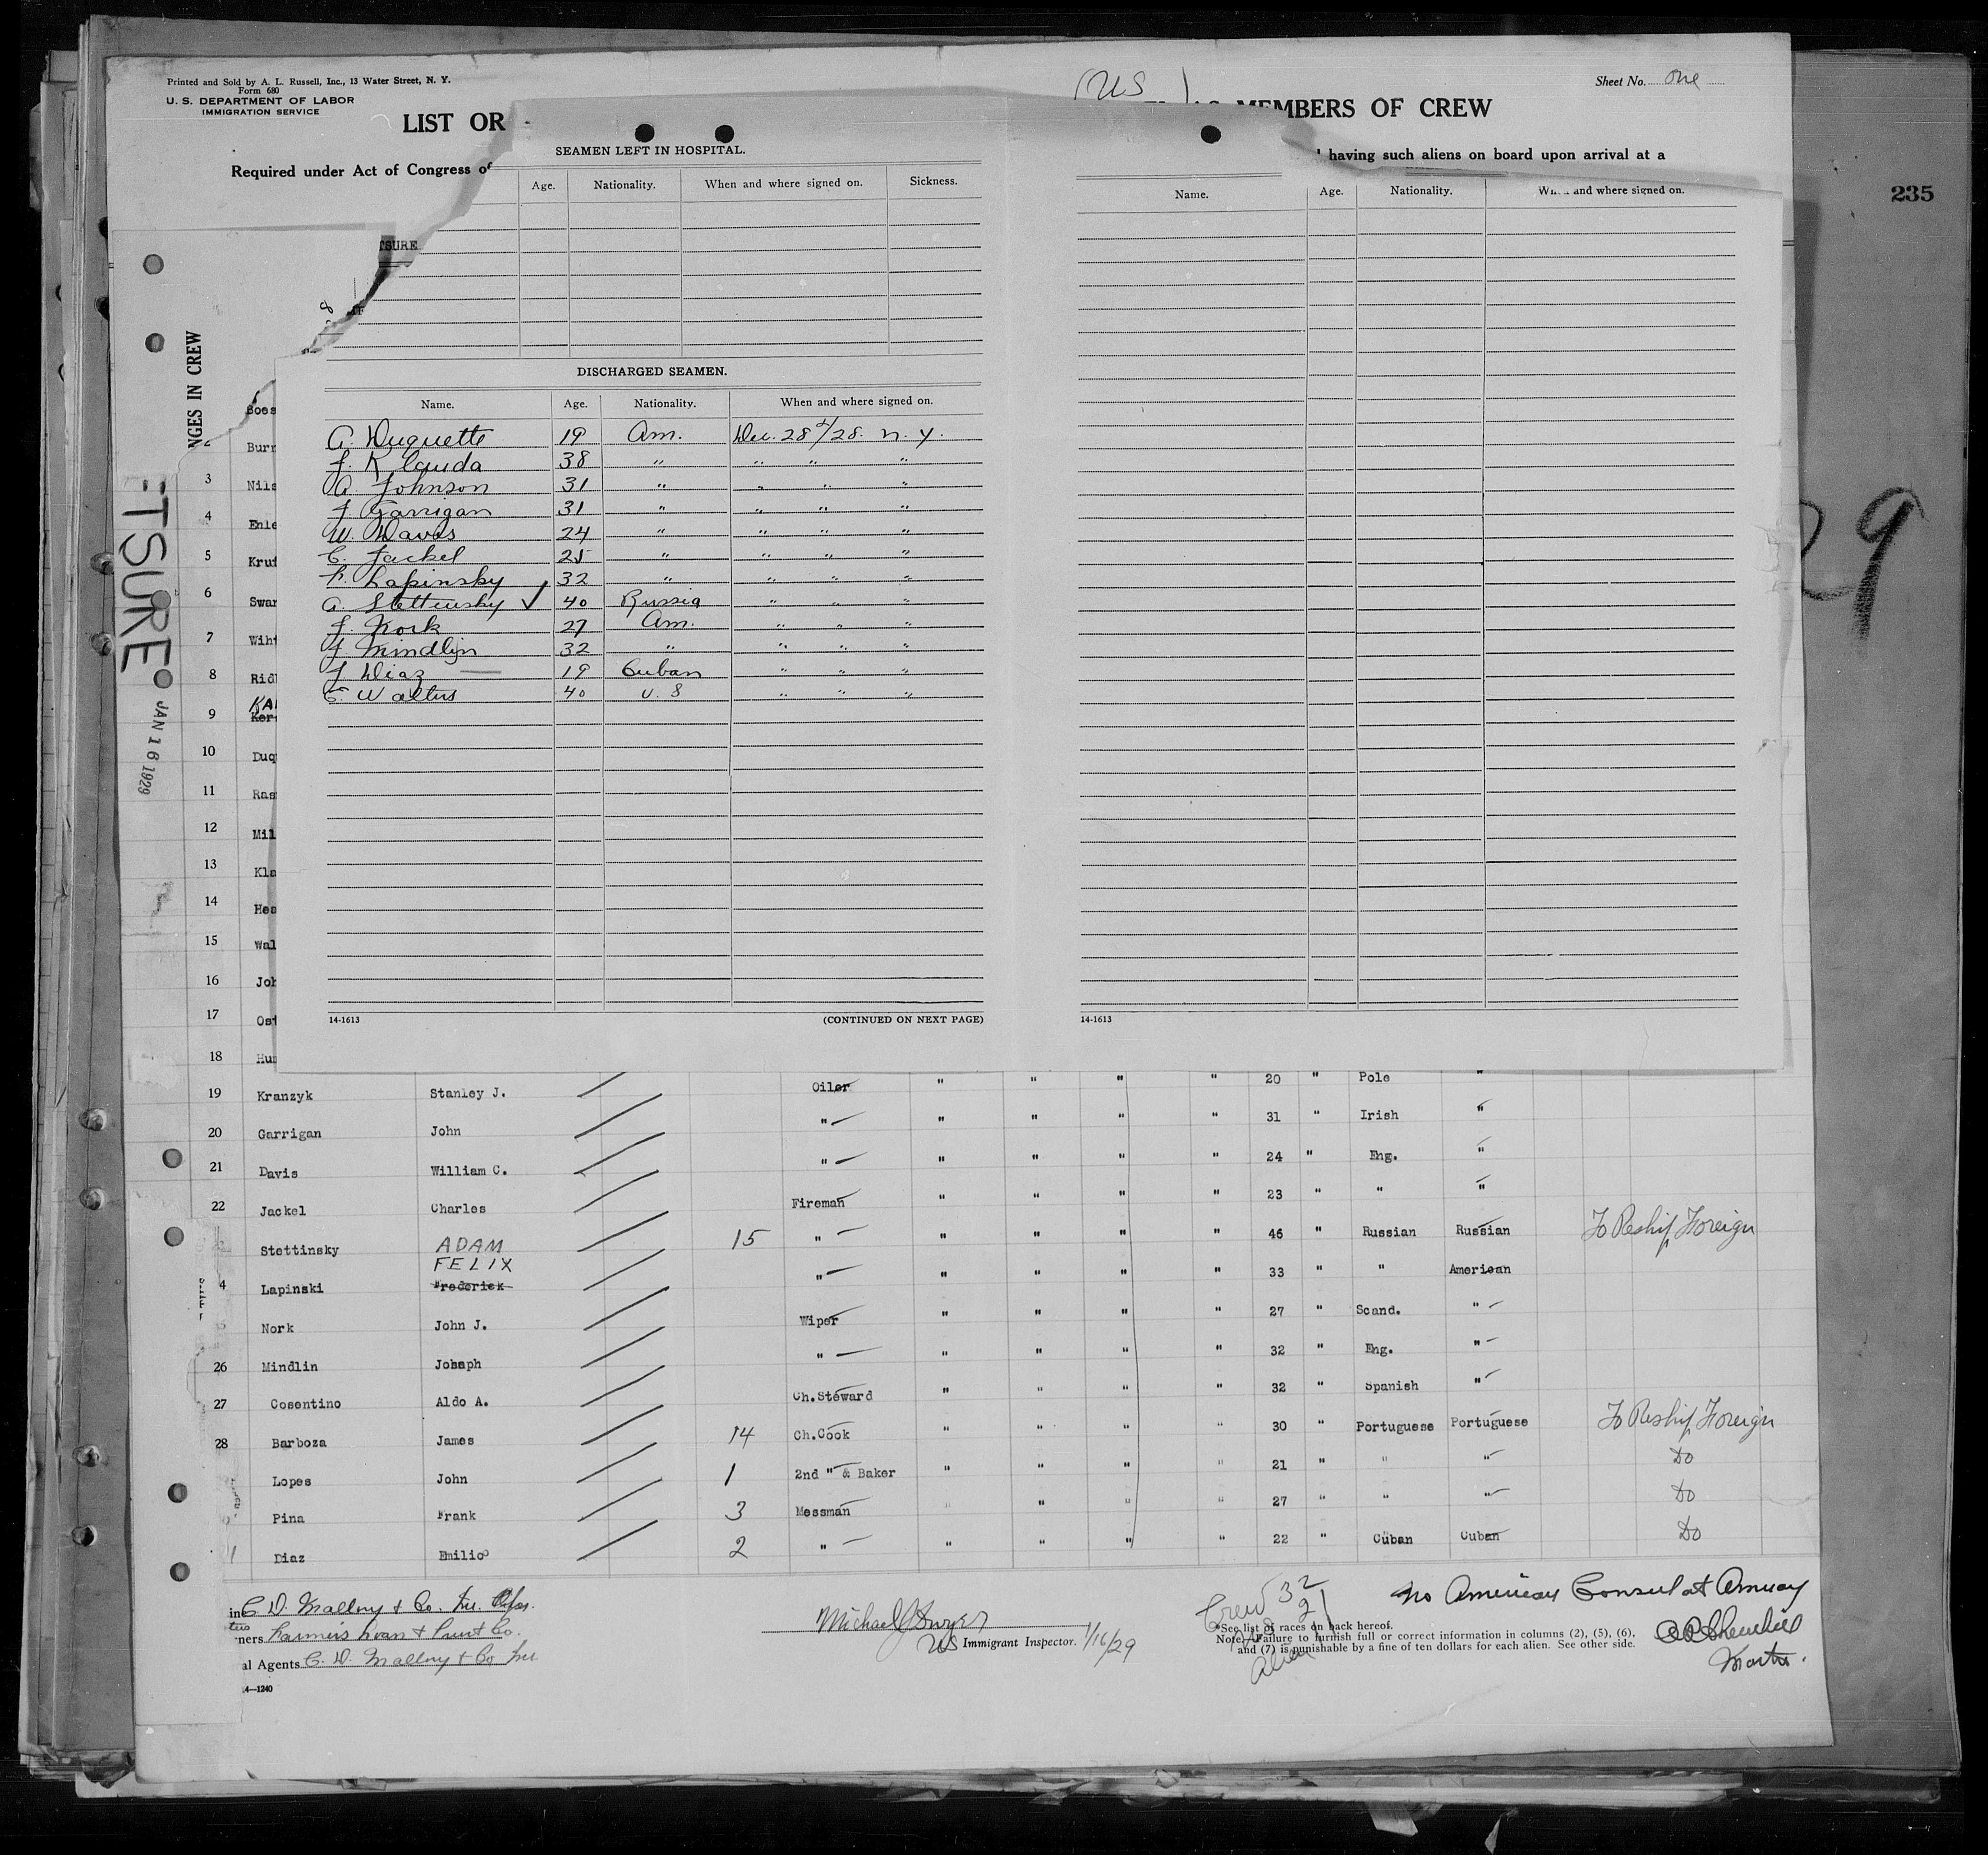 Printed and Sold by A. L. Russell, Inc., 13 Water Street, N. Y.
Form 680
U. S. DEPARTMENT OF LABOR
IMMIGRATION SERVICE
(US)
Sheet No. One
LIST OR
MEMBERS OF CREW
Required under Act of Congress of
having such aliens on board upon arrival at a
235
SEAMEN LEFT IN HOSPITAL.
Age. Nationality. When and where signed on. Sickness.
Name. Age. Nationality. When and where signed on.
TSURE
NGES IN CREW
ETSURE
JAN 16 1929
29
DISCHARGED SEAMEN.
Name. Age. Nationality. When and where signed on.
A. Duquette 19 Am. Dec. 28th/28. N. Y.
J. Klauda 38 " " " "
A. Johnson 31 " " " "
J. Garrigan 31 " " " "
W. Davis 24 " " " "
C. Jackel 25 " " " "
F. Lapinsky 32 " " " "
A. Stettinsky ✓ 40 Russia " " "
J. Nork 27 Am. " " "
J. Mindlin 32 " " " "
J. Diaz — 19 Cuban " " "
E. Walters 40 U. S " " "
14-1613 (CONTINUED ON NEXT PAGE)
14-1613
Boes
Burr
3 Nils
4 Ehle
5 Kruf
6 Swan
7 Wiht
8 Ridl
KAI
9 Ker
10 Duq
11 Ras
12 Mil
13 Kla
14 Hea
15 Wal
16 Joh
17 Ost
18 Hum
19 Kranzyk Stanley J. Oiler " " " " 20 " Pole "
20 Garrigan John " " " " " 31 " Irish "
21 Davis William C. " " " " " 24 " Eng. "
22 Jackel Charles Fireman " " " " 23 " " "
Stettinsky ADAM 15 " " " " " 46 " Russian Russian To Reship Foreign
FELIX
4 Lapinski Frederick " " " " " 33 " " American
Nork John J. Wiper " " " " 27 " Scand. "
26 Mindlin Joheph " " " " " 32 " Eng. "
27 Cosentino Aldo A. Ch.Steward " " " " 32 " Spanish "
28 Barboza James 14 Ch.Cook " " " " 30 " Portuguese Portuguese To Reship Foreign
Lopes John 1 2nd " & Baker " " " " 21 " " " Do
Pina Frank 3 Messman " " " " 27 " " " Do
Diaz Emilio 2 " " " " " 22 " Cuban Cuban Do
C. D. Mallory & Co. Inc.
ners Farmers Loan & Trust Co.
al Agents C. D. Mallory & Co Inc
4—1240
Michael J Dwyer
US Immigrant Inspector. 1/16/29
Crew 32
21
Alien
*See list of races on back hereof.
Note.—Failure to furnish full or correct information in columns (2), (5), (6),
and (7) is punishable by a fine of ten dollars for each alien. See other side.
No American Consul at Amuay
Master.